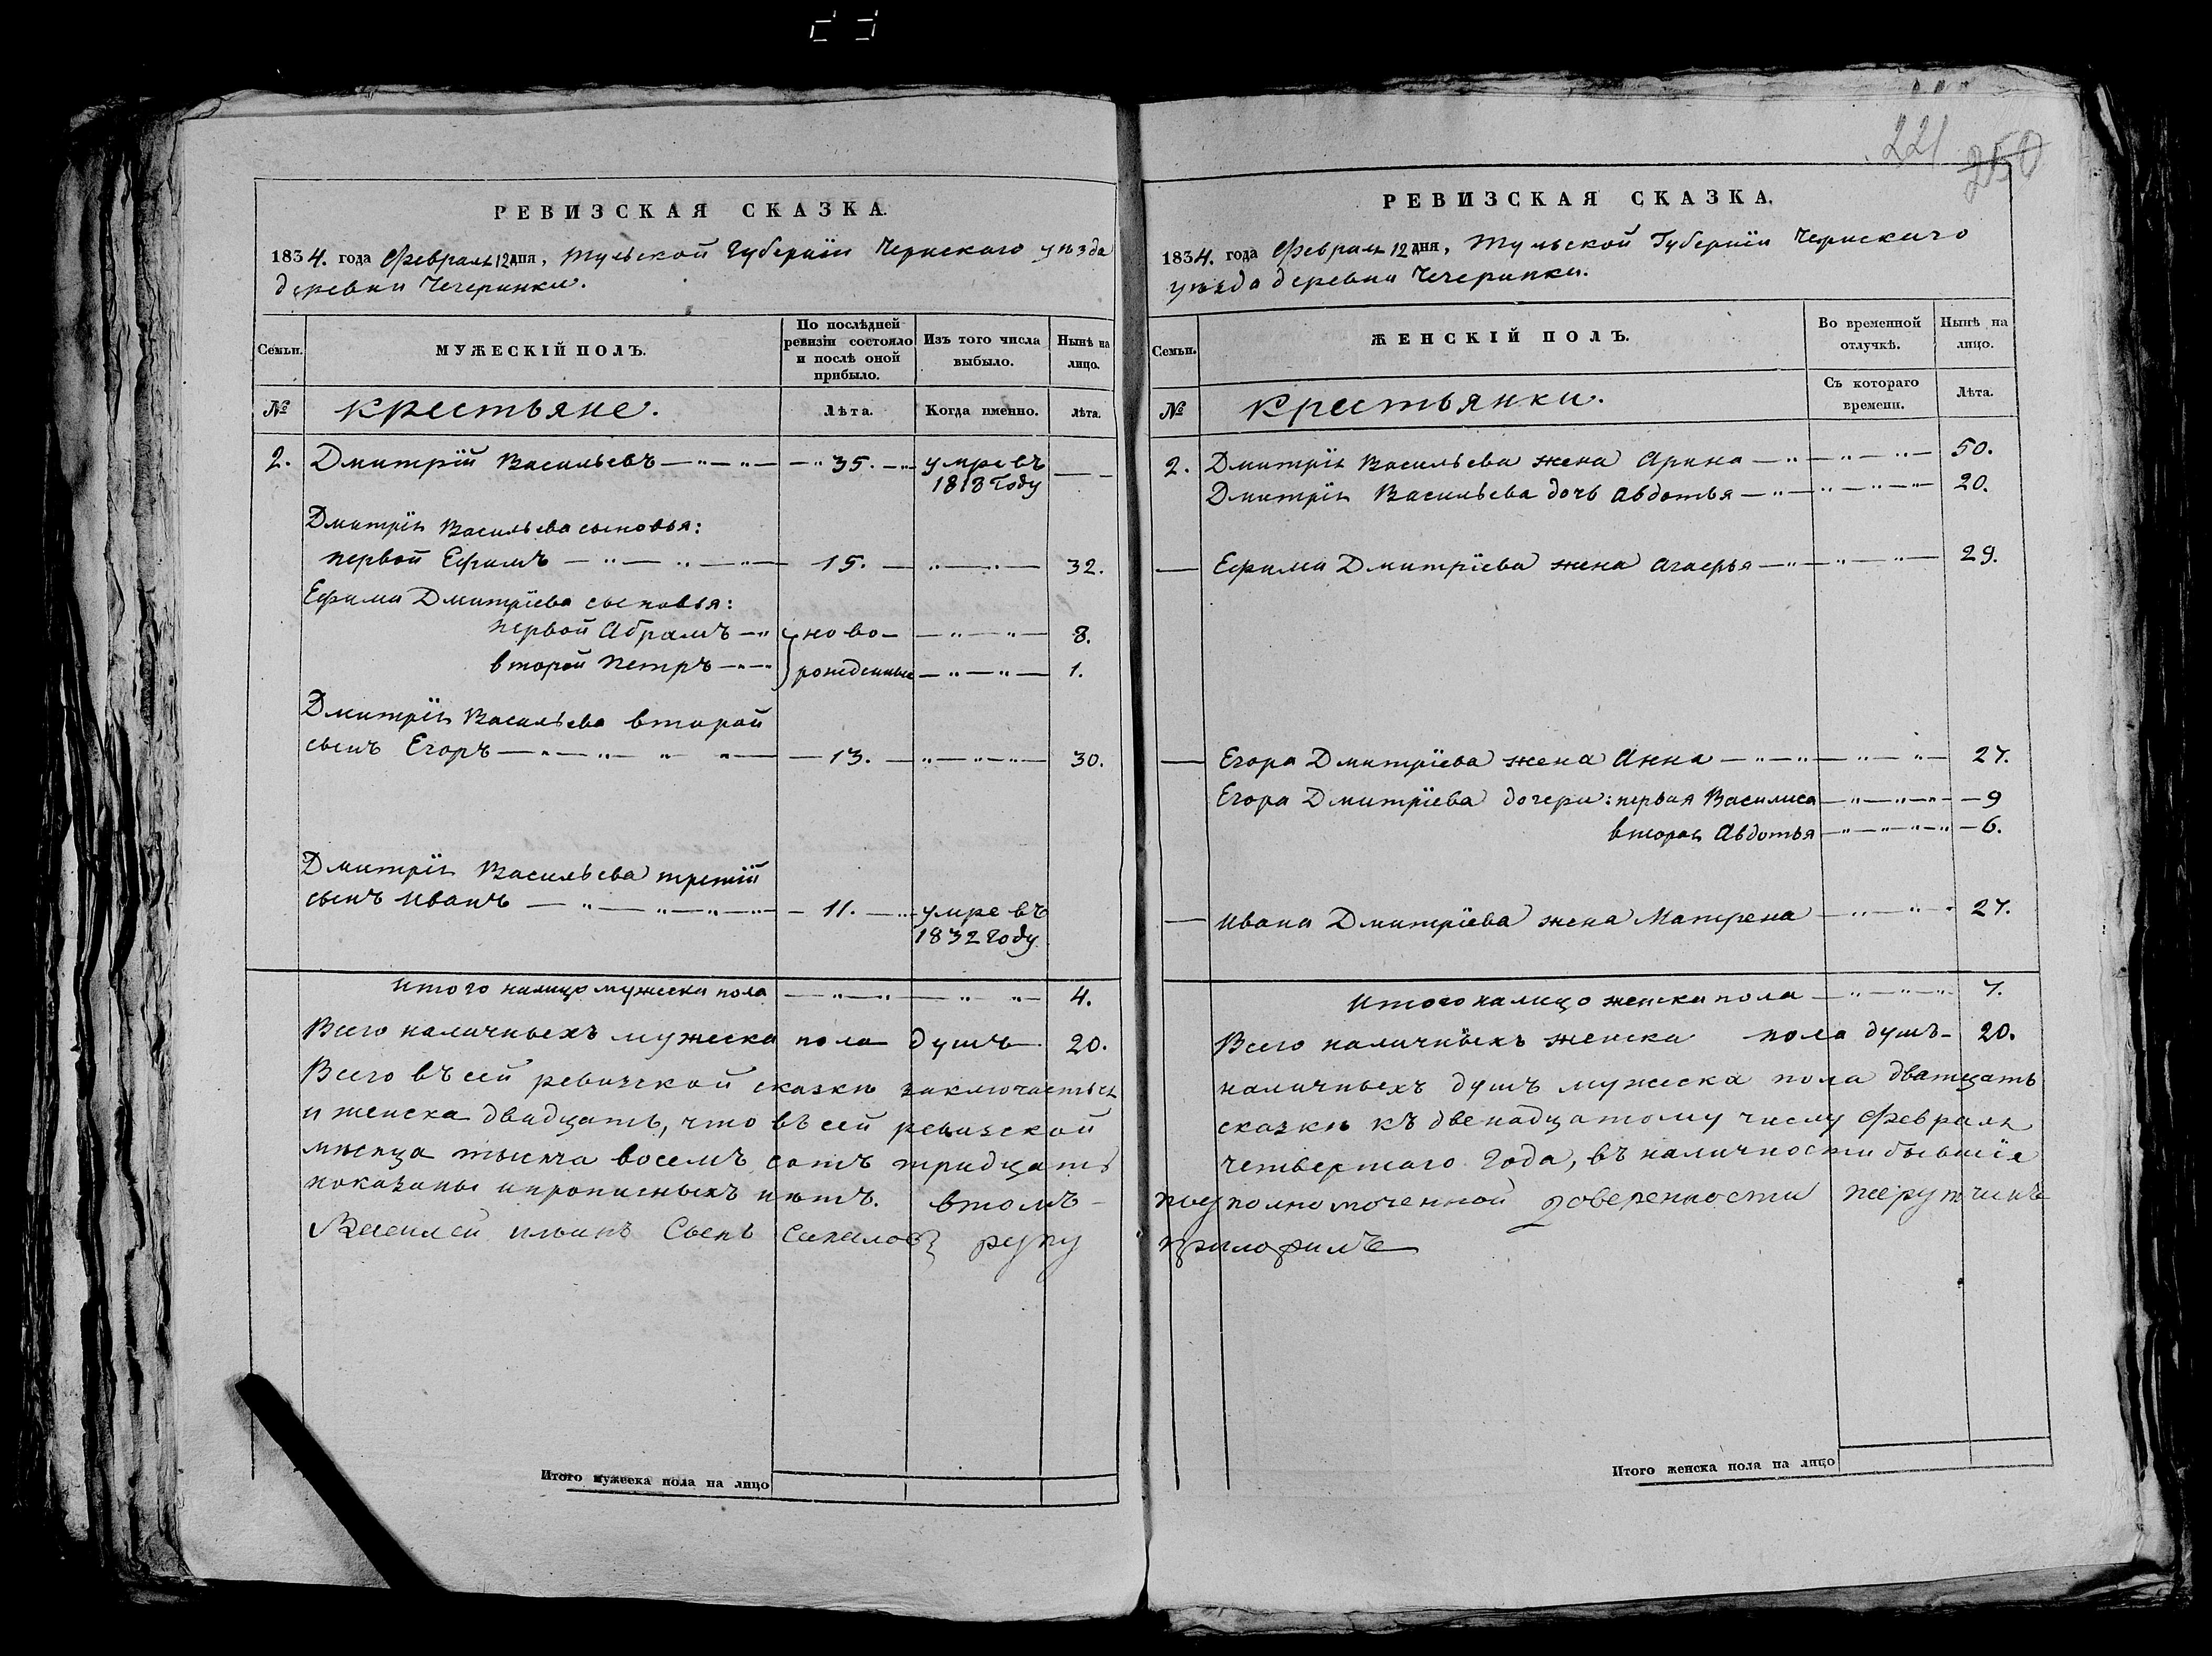 221 250
РЕВИЗСКАЯ СКАЗКА.
1834. года Февраля 12 дня, Тульской Губернïи Чернскаго уѣзда
деревни Чечеринки.
Семьи.
МУЖЕСКІЙ ПОЛЪ.
По послѣдней
ревизіи состояло
и послѣ оной
прибыло.
Изъ того числа
выбыло.
Нынѣ на
лицо.
№ крестьяне. Лѣта. Когда именно. лѣта.
2. Дмитрïй Васильевъ 35. умре въ
1818 году
Дмитрïя Васильева сыновья:
первой Ефимъ 15. 32.
Ефима Дмитрïева сыновья:
первой Абрамъ ново- 8.
второй Петръ рожденные 1.
Дмитрïя Васильева второй
сынъ Егоръ 13. 30.
Дмитрïя Васильева третïй
сынъ Иванъ 11. умре въ
1832 году
Итого налицо мужеска пола 4.
Всего наличныхъ мужеска пола душъ 20.
Всего въ сей ревизской сказкѣ заключается
и женска двадцать, что въ сей ревизской
мѣсяца тысяча восемъ сотъ тридцать
показаны ипрописныхъ нѣтъ. втомъ
Василей ильинъ Сынъ руку
Итого мужеска пола на лицо
РЕВИЗСКАЯ СКАЗКА.
1834. года Февраля 12 дня, Тульской Губернïи Чернскаго
уѣзда деревни Чечеринки.
Семьи.
ЖЕНСКІЙ ПОЛЪ.
Во временной
отлучкѣ.
Нынѣ на
лицо.
№ крестьянки. Съ котораго
времени. Лѣта.
2. Дмитрïя Васильева жена Арина 50.
Дмитрïя Васильева дочь Авдотья 20.
Ефима Дмитрïева жена Агафья 29.
Егора Дмитрïева жена Анна 27.
Егора Дмитрïева дочери: первая Василиса 9
вторая Авдотья 6.
Ивана Дмитрïева жена Матрена 27.
Итого налицо женска пола 7.
Всего наличныхъ женска пола душъ 20.
наличныхъ душъ мужеска пола дватцать
сказкѣ къ двенадцатому числу Февраля
четвертаго года, въ наличности бывшïе
полномоченной доверенности
приложилъ
Итого женска пола на лицо